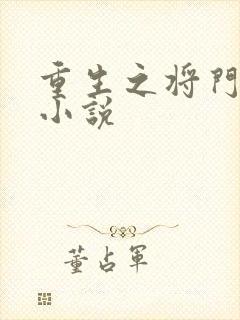 重生之将門
小說
董占軍